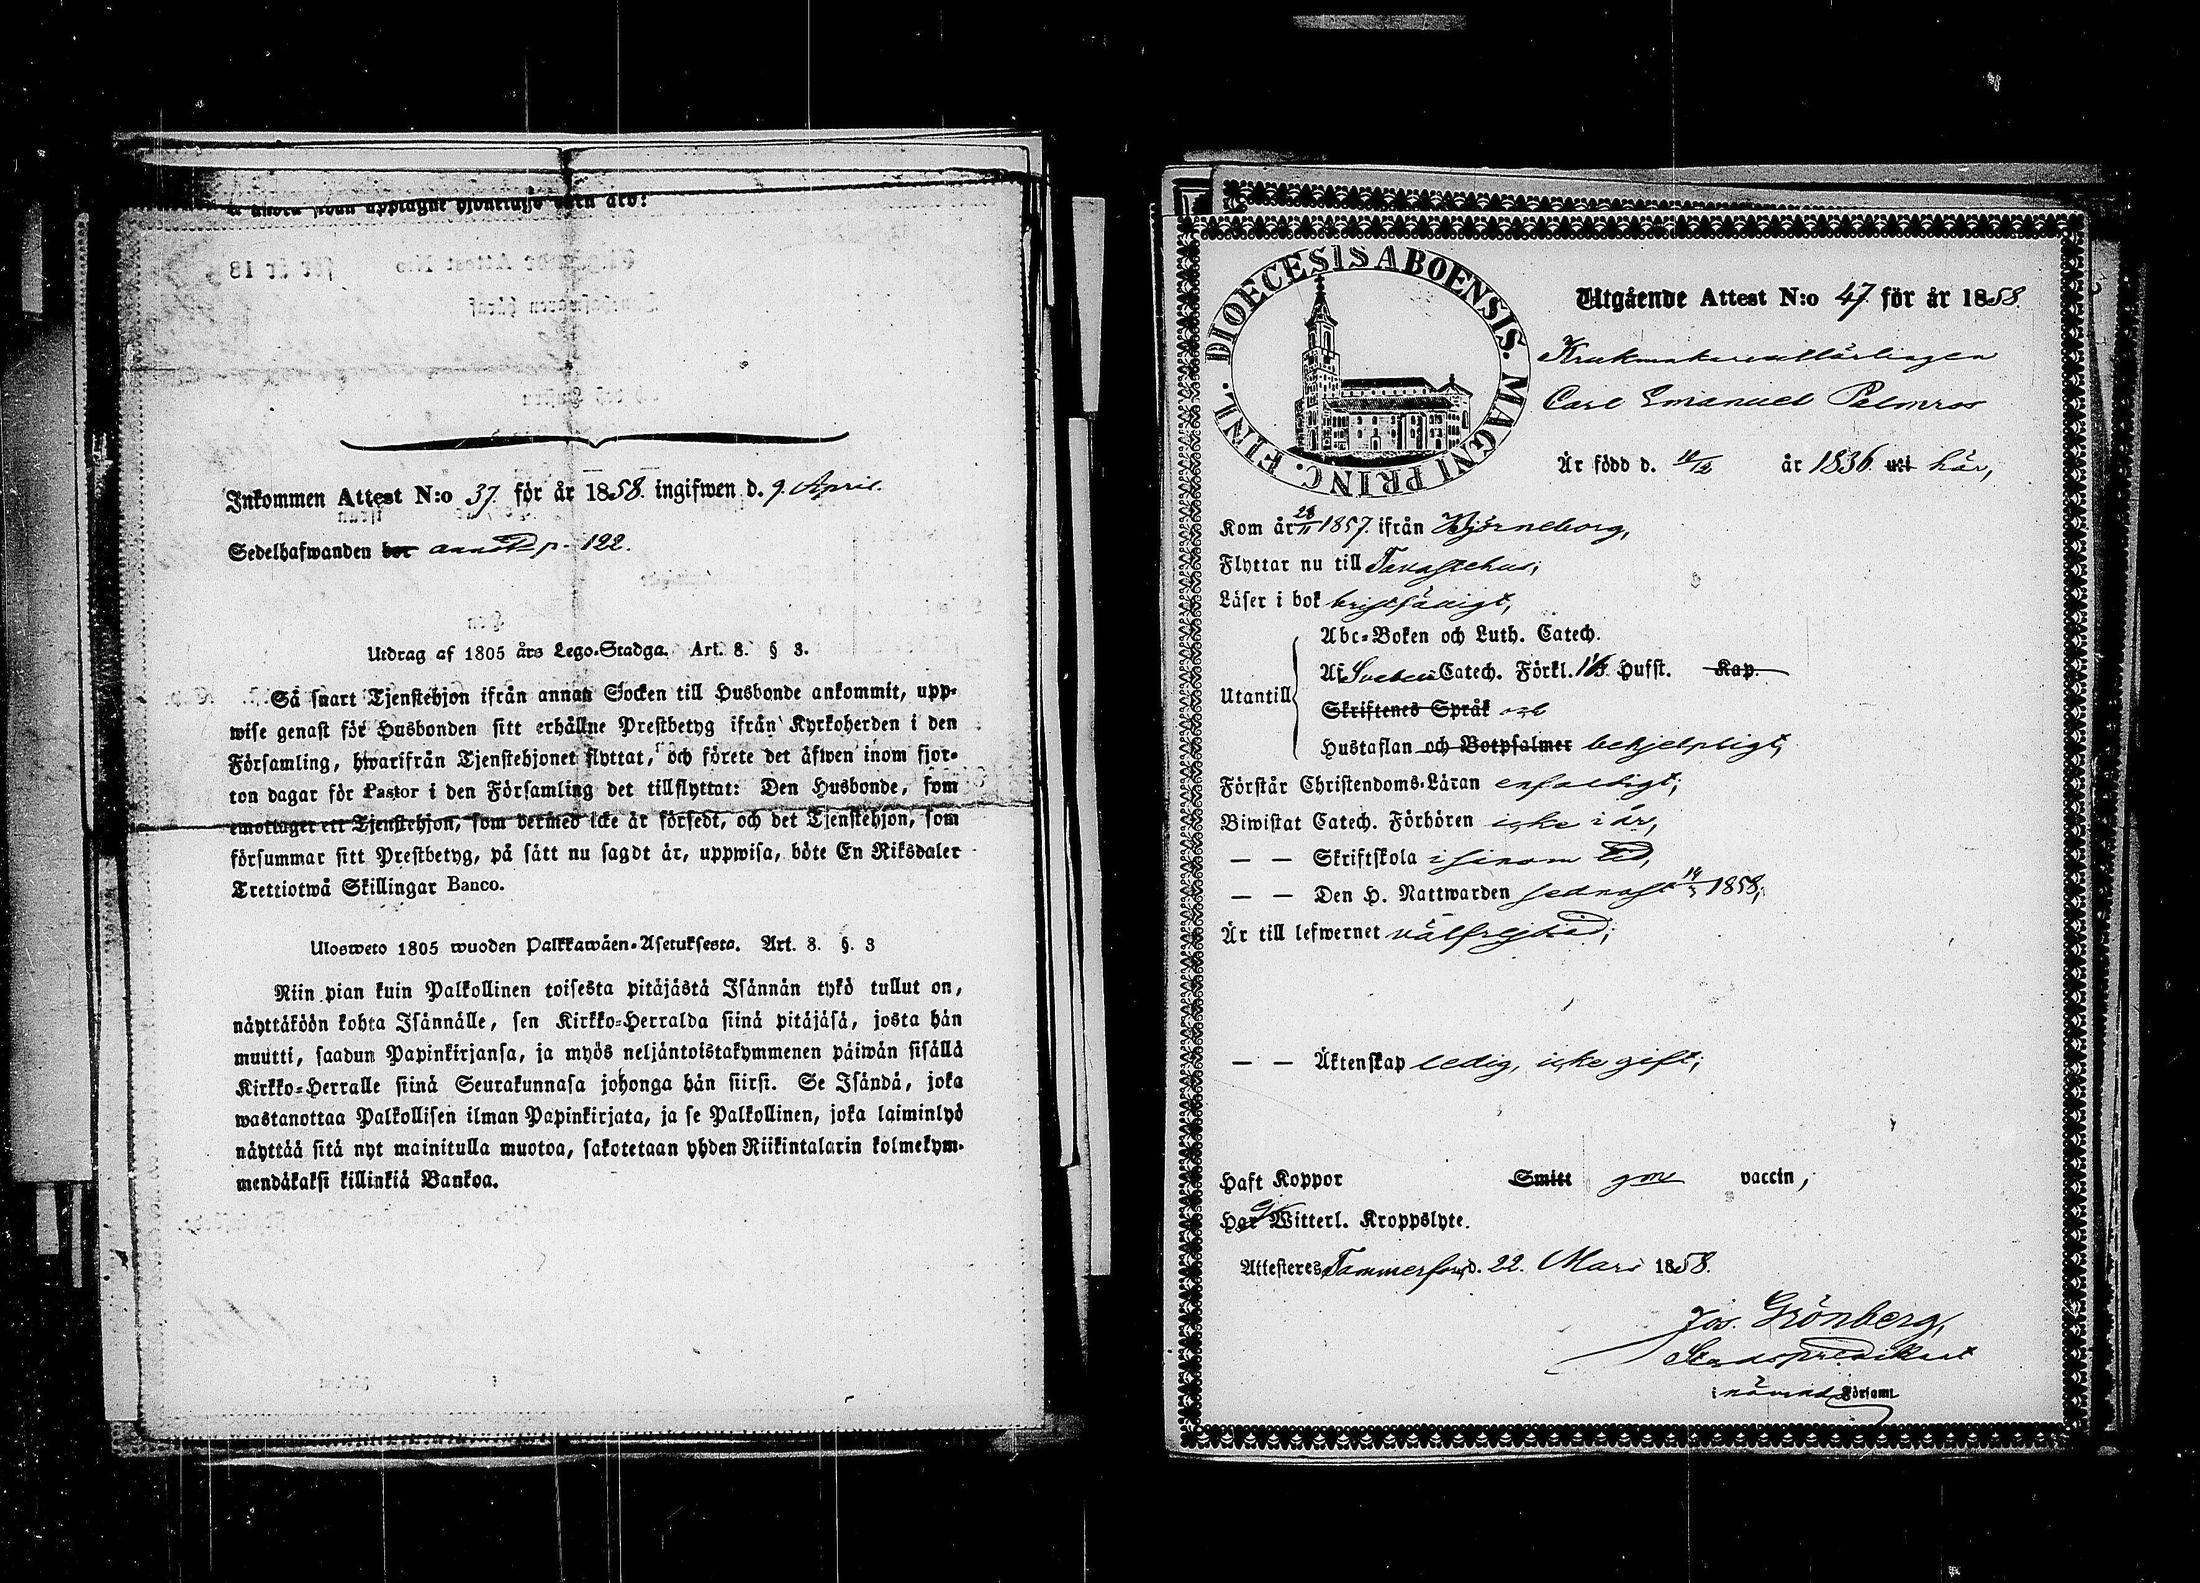 Inkommen Attest N:o 37. för år 1858. ingifwen d. 9. April.
Sedelhafwanden bor annot. p. 122.
Utdrag af 1805 års Lego-Stadga. Art. 8. § 3.
Så snart Tjenstehjon ifrån annan Socken till Husbonde ankommit, upp-
wise genast för Husbonden sitt erhållne Prestbetyg ifrån Kyrkoherden i den
Församling, hwarifrån Tjenstehjonet flyttat, och förete det äfwen inom fjor-
ton dagar för Pastor i den Församling det tillflyttat: Den Husbonde, som
emottager ett Tjenstehjon, som dermed icke är försedt, och det Tjenstehjon, som
försummar sitt Prestbetyg, på sätt nu sagdt är, uppwisa, böte En Riksdaler
Trettiotwå Skillingar Banco.
Ulosweto 1805 wuoden Palkkawäen-Asetuksesta. Art. 8. §. 3
Niin pian kuin Palkollinen toisesta pitäjästä Isännän tykö tullut on,
näyttäköön kohta Isännälle, sen Kirkko-Herralda siinä pitäjäsä, josta hän
muutti, saadun Papinkirjansa, ja myös neljäntoistakymmenen päiwän sisällä
Kirkko-Herralle siinä Seurakunnasa johonga hän siirsi. Se Isändä, joka
wastanottaa Palkollisen ilman Papinkirjata, ja se Palkollinen, joka laiminlyö
näyttää sitä nyt mainitulla muotoa, sakotetaan yhden Riikintalarin kolmekym-
mendäkaksi killinkiä Bankoa.
DIOECESIS ABOENSIS. MAGNI PRINC. FINL.
Utgående Attest N:o 47. för år 1858.
Krukmakarelärlingen
Carl Emanuel Palmros
Är född d. år 1836 uti här,
Kom år 28/11 1857. ifrån Björneborg,
Flyttar nu till Tavastehus;
Läser i bok bristfälligt,
Abc-Boken och Luth. Catech.
Af Svebeli Catech. Förkl. Hufst. Kap.
Utantill
Skriftenes Språk och
Hustaflan och Botpsalmer behjelpligt,
Förstår Christendoms-Läran enfaldigt;
Biwistat Catech. Förhören icke i år,
— — Skriftskola i sinom tid,
— — Den H. Nattwarden sednast 14/3 1858;
Är till lefwernet välfrejdad;
— — Äktenskap ledig, icke gift;
Haft Koppor Smitt gm vaccin,
Har Witterl. Kroppslyte.
Attesteres Tammerfors d. 22. Mars 1858.
Jos. Grönberg,
Stadspredikant
i nämnde Församl